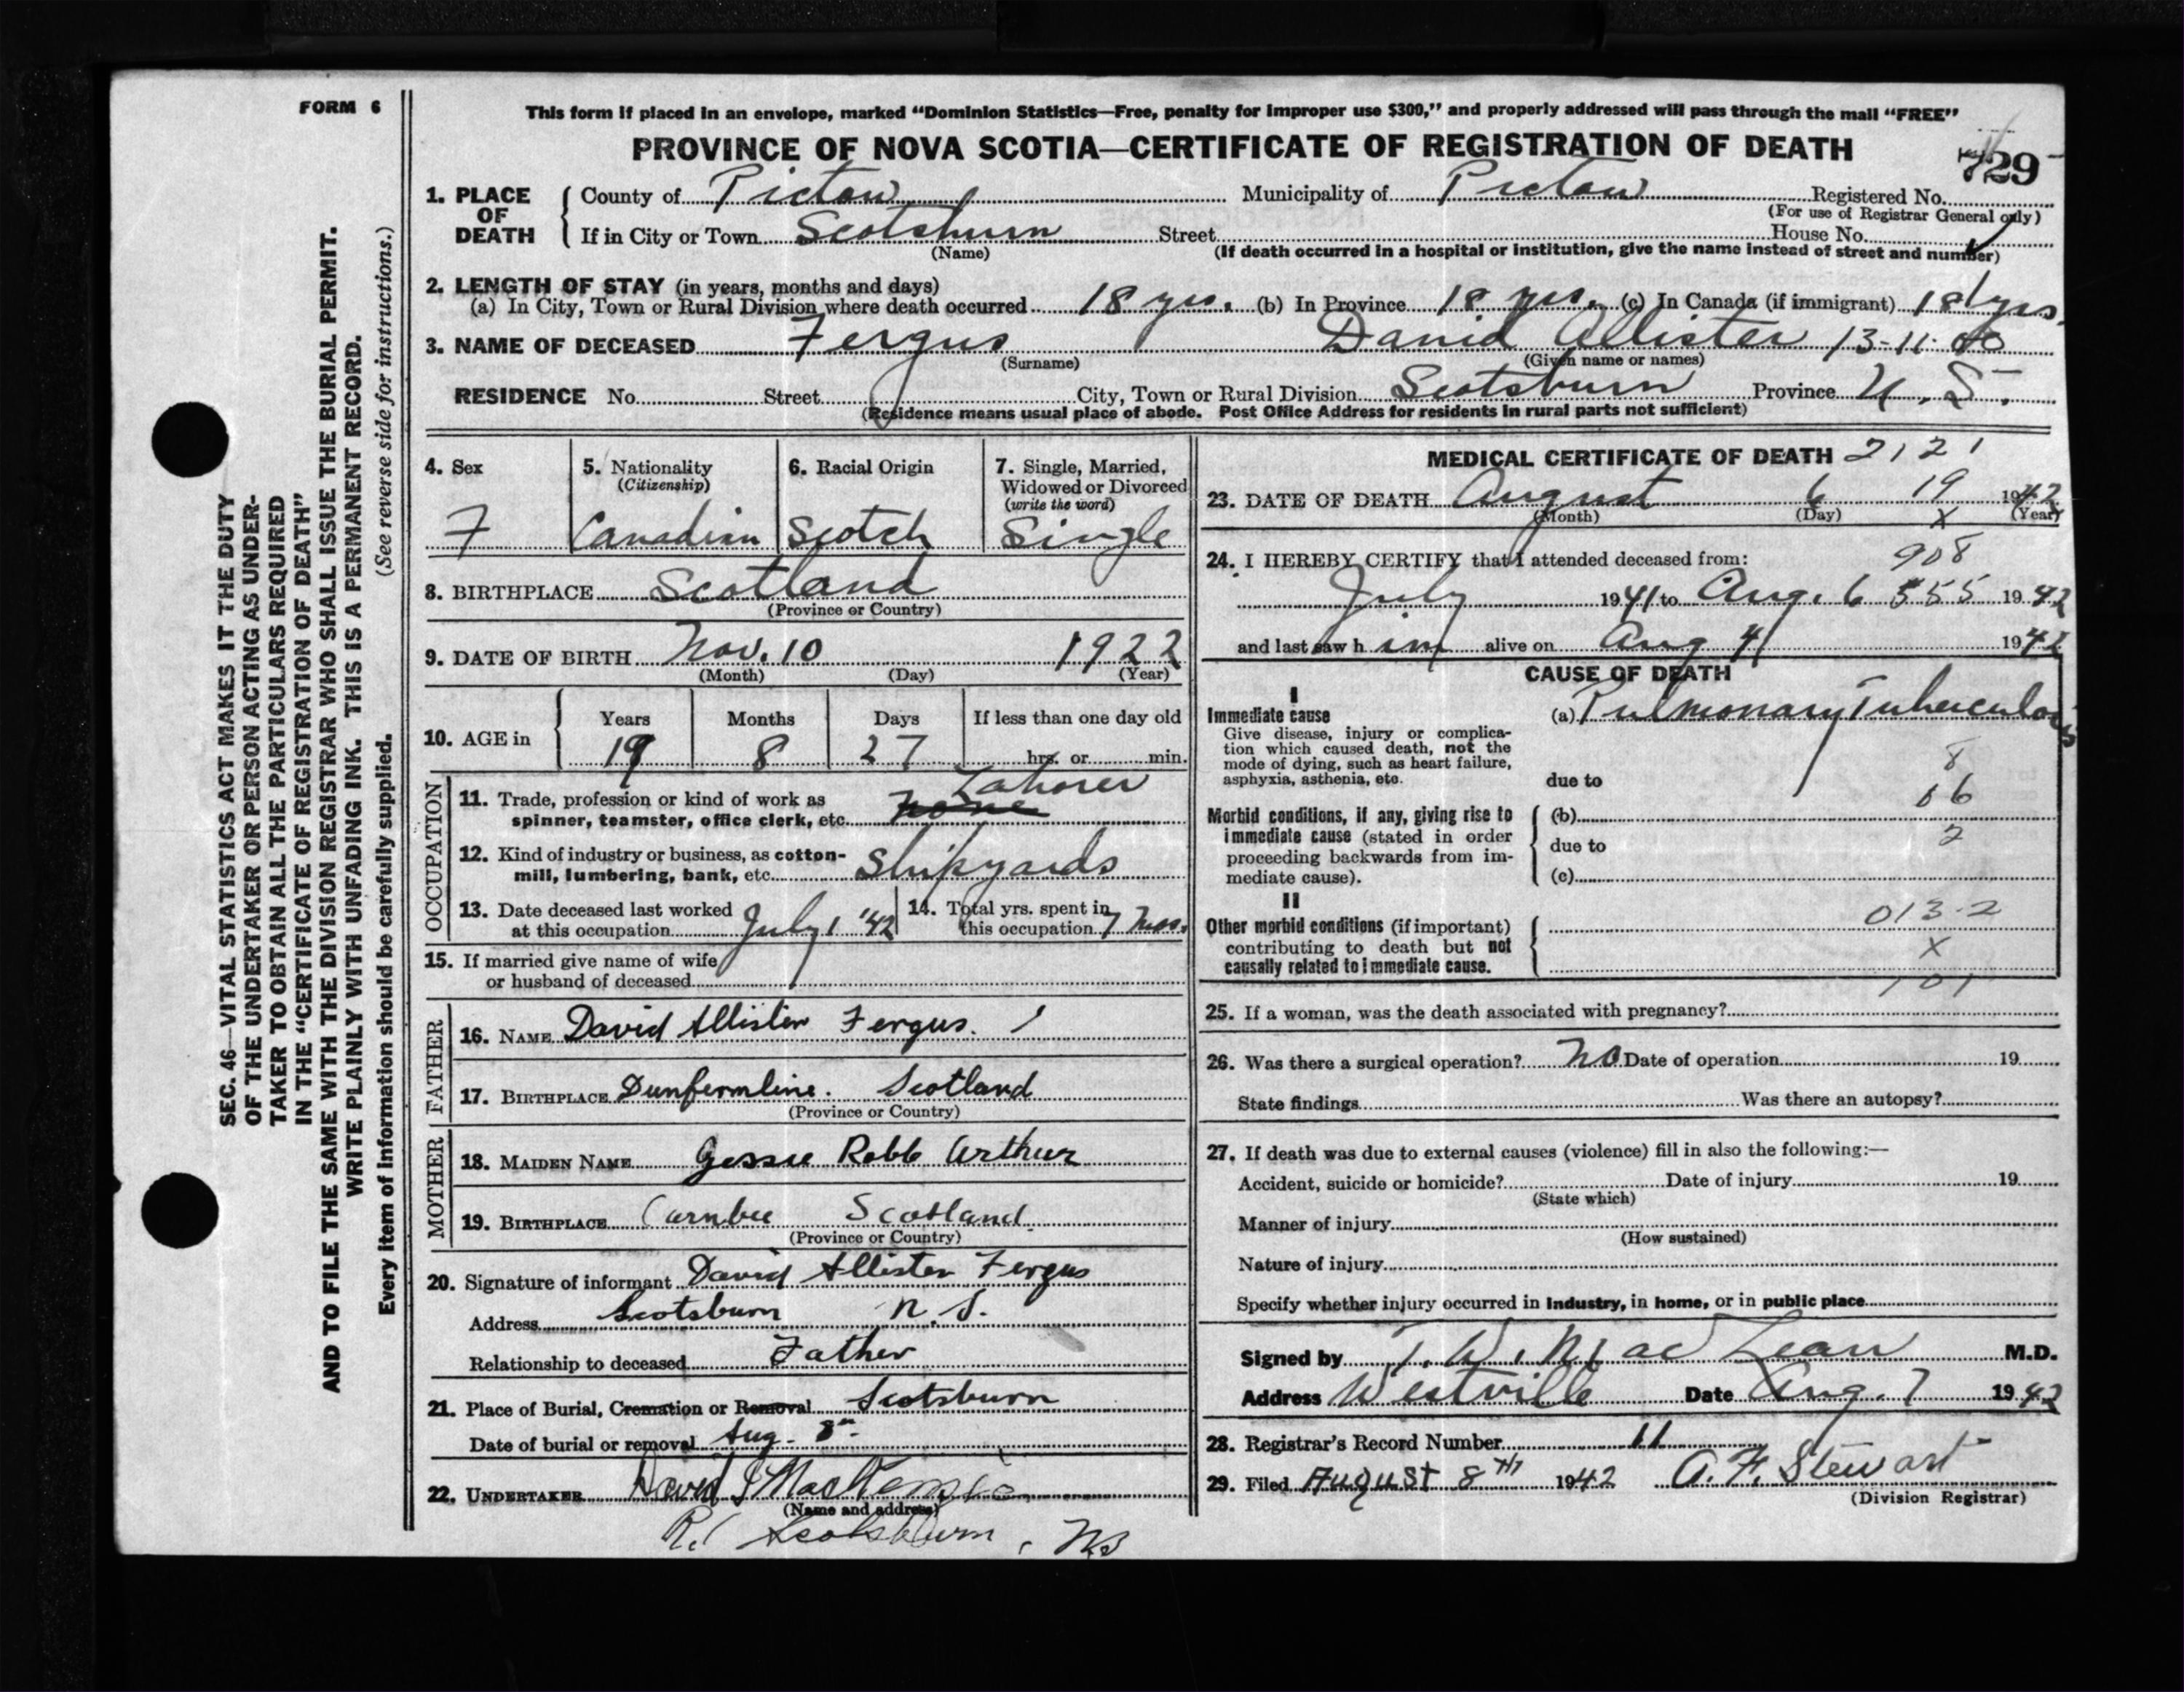 FORM 6
This form if placed in an envelope, marked “Dominion Statistics—Free, penalty for improper use $300,” and properly addressed will pass through the mail “FREE”
PROVINCE OF NOVA SCOTIA—CERTIFICATE OF REGISTRATION OF DEATH
729
1. PLACE OF DEATH
County of Pictou Municipality of Pictou Registered No.
(For use of Registrar General only)
If in City or Town Scotsburn Street House No.
(Name) (If death occurred in a hospital or institution, give the name instead of street and number)
2. LENGTH OF STAY (in years, months and days)
(a) In City, Town or Rural Division where death occurred 18 yrs. (b) In Province 18 yrs. (c) In Canada (if immigrant) 18 yrs.
3. NAME OF DECEASED Fergus David Allister 13-11-
(Surname) (Given name or names)
RESIDENCE No. Street City, Town or Rural Division Scotsburn Province N. S.
(Residence means usual place of abode. Post Office Address for residents in rural parts not sufficient)
4. Sex
F
5. Nationality
(Citizenship)
Canadian
6. Racial Origin
Scotch
7. Single, Married,
Widowed or Divorced
(write the word)
Single
8. BIRTHPLACE Scotland
(Province or Country)
9. DATE OF BIRTH Nov. 10 1922
(Month) (Day) (Year)
10. AGE in
Years Months Days If less than one day old
19 8 27 hrs. or min.
OCCUPATION
Laborer
11. Trade, profession or kind of work as
spinner, teamster, office clerk, etc. None
12. Kind of industry or business, as cotton-
mill, lumbering, bank, etc. Shipyards
13. Date deceased last worked
at this occupation July 1 '42
14. Total yrs. spent in
this occupation 7 mos.
15. If married give name of wife
or husband of deceased
FATHER
16. NAME David Allister Fergus.
17. BIRTHPLACE Dunfermline. Scotland
(Province or Country)
MOTHER
18. MAIDEN NAME Jessie Robb Arthur
19. BIRTHPLACE Carnbee Scotland.
(Province or Country)
20. Signature of informant David Allister Fergus
Address Scotsburn N. S.
Relationship to deceased Father
21. Place of Burial, Cremation or Removal Scotsburn
Date of burial or removal Aug. 8
22. UNDERTAKER David J MacKenzie
(Name and address)
R.1 Scotsburn, NS
MEDICAL CERTIFICATE OF DEATH 2121
23. DATE OF DEATH August 6 19 1942
(Month) (Day) X (Year)
908
24. I HEREBY CERTIFY that I attended deceased from:
July 1941 to Aug. 6 555 1942
and last saw him alive on Aug 4 1942
CAUSE OF DEATH
I
Immediate cause
Give disease, injury or complica-
tion which caused death, not the
mode of dying, such as heart failure,
asphyxia, asthenia, etc.
(a) Pulmonary Tuberculosis
8
due to
06
Morbid conditions, if any, giving rise to
immediate cause (stated in order
proceeding backwards from im-
mediate cause).
(b)
2
due to
(c)
II
Other morbid conditions (if important)
contributing to death but not
causally related to immediate cause.
013-2
X
101
25. If a woman, was the death associated with pregnancy?
26. Was there a surgical operation? No Date of operation 19
State findings Was there an autopsy?
27. If death was due to external causes (violence) fill in also the following:—
Accident, suicide or homicide? Date of injury 19
(State which)
Manner of injury
(How sustained)
Nature of injury
Specify whether injury occurred in industry, in home, or in public place
Signed by T. W. MacLean M.D.
Address Westville Date Aug. 7 1942
28. Registrar's Record Number 11
29. Filed August 8TH 1942 A. F. Stewart
(Division Registrar)
SEC. 46—VITAL STATISTICS ACT MAKES IT THE DUTY
OF THE UNDERTAKER OR PERSON ACTING AS UNDER-
TAKER TO OBTAIN ALL THE PARTICULARS REQUIRED
IN THE “CERTIFICATE OF REGISTRATION OF DEATH”
AND TO FILE THE SAME WITH THE DIVISION REGISTRAR WHO SHALL ISSUE THE BURIAL PERMIT.
WRITE PLAINLY WITH UNFADING INK. THIS IS A PERMANENT RECORD.
Every item of information should be carefully supplied. (See reverse side for instructions.)